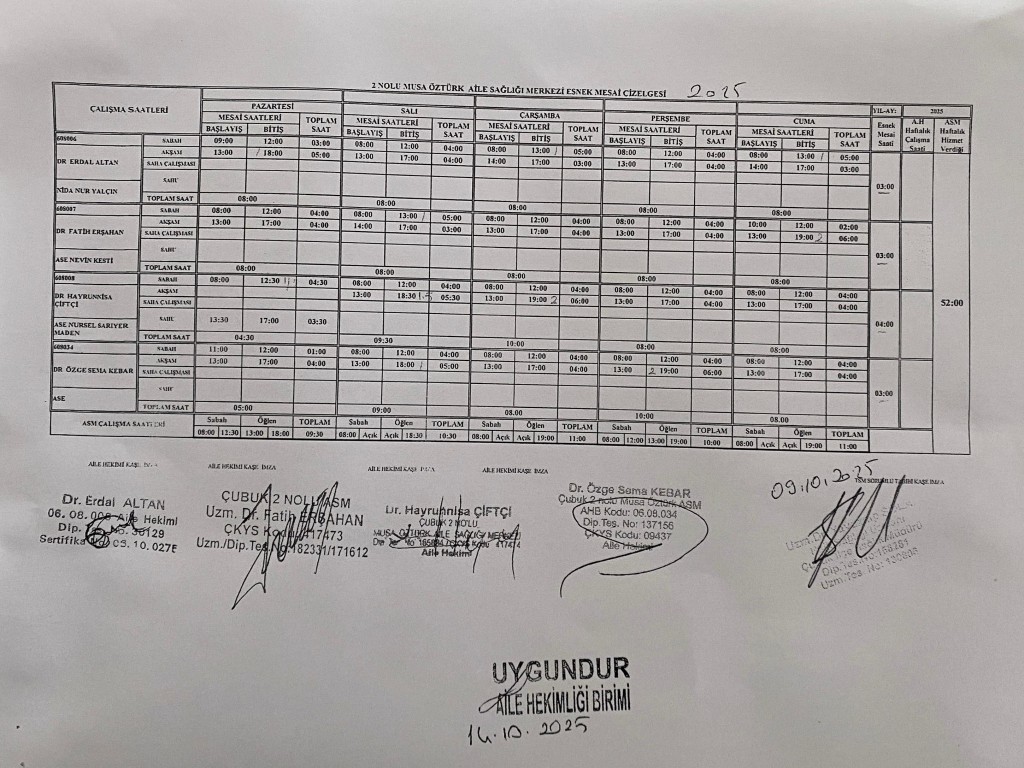 2 NOLU MUSA ÖZTÜRK AİLE SAĞLIĞI MERKEZİ ESNEK MESAİ ÇİZELGESİ 2025
ÇALIŞMA SAATLERİ PAZARTESİ SALI ÇARŞAMBA PERŞEMBE CUMA YIL-AY: 2025
MESAİ SAATLERİ TOPLAM SAAT MESAİ SAATLERİ TOPLAM SAAT MESAİ SAATLERİ TOPLAM SAAT MESAİ SAATLERİ TOPLAM SAAT MESAİ SAATLERİ TOPLAM SAAT Esnek Mesai Saati A.H Haftalık Çalışma Saati ASM Haftalık Hizmet Verdiği
BAŞLAYIŞ BİTİŞ BAŞLAYIŞ BİTİŞ BAŞLAYIŞ BİTİŞ BAŞLAYIŞ BİTİŞ BAŞLAYIŞ BİTİŞ
608006 SABAH 09:00 12:00 03:00 08:00 12:00 04:00 08:00 13:00 05:00 08:00 12:00 04:00 08:00 13:00 05:00
DR ERDAL ALTAN AKŞAM 13:00 18:00 05:00 13:00 17:00 04:00 14:00 17:00 03:00 13:00 17:00 04:00 14:00 17:00 03:00
SAHA ÇALIŞMASI
03:00
NİDA NUR YALÇIN
TOPLAM SAAT 08:00 08:00 08:00 08:00 08:00
608007 SABAH 08:00 12:00 04:00 08:00 13:00 05:00 08:00 12:00 04:00 08:00 12:00 04:00 10:00 12:00 02:00
DR FATİH ERŞAHAN AKŞAM 13:00 17:00 04:00 14:00 17:00 03:00 13:00 17:00 04:00 13:00 17:00 04:00 13:00 19:00 2 06:00
SAHA ÇALIŞMASI
03:00
ASE NEVİN KESTİ
TOPLAM SAAT 08:00 08:00 08:00 08:00 08:00
608008 SABAH 08:00 12:30 04:30 08:00 12:00 04:00 08:00 12:00 04:00 08:00 12:00 04:00 08:00 12:00 04:00
DR HAYRUNNİSA ÇİFTÇİ AKŞAM 13:00 18:30 05:30 13:00 19:00 2 06:00 13:00 17:00 04:00 13:00 17:00 04:00
SAHA ÇALIŞMASI
04:00
52:00
ASE NURSEL SARIYER MADEN 13:30 17:00 03:30
TOPLAM SAAT 04:30 09:30 10:00 08:00 08:00
608034 SABAH 11:00 12:00 01:00 08:00 12:00 04:00 08:00 12:00 04:00 08:00 12:00 04:00 08:00 12:00 04:00
DR ÖZGE SEMA KEBAR AKŞAM 13:00 17:00 04:00 13:00 18:00 05:00 13:00 17:00 04:00 13:00 2 19:00 06:00 13:00 17:00 04:00
SAHA ÇALIŞMASI
03:00
ASE
TOPLAM SAAT 05:00 09:00 08.00 10:00 08.00
ASM ÇALIŞMA SAATLERİ Sabah Öğlen TOPLAM Sabah Öğlen TOPLAM Sabah Öğlen TOPLAM Sabah Öğlen TOPLAM Sabah Öğlen TOPLAM
08:00 12:30 13:00 18:00 09:30 08:00 Açık Açık 18:30 10:30 08:00 Açık Açık 19:00 11:00 08:00 12:00 13:00 19:00 10:00 08:00 Açık Açık 19:00 11:00
AİLE HEKİMİ KAŞE İMZA AİLE HEKİMİ KAŞE İMZA AİLE HEKİMİ KAŞE İMZA AİLE HEKİMİ KAŞE İMZA
09.10.2025
Dr. Erdal ALTAN
06.08.006 Aile Hekimi
Dip.
Sertifika
ÇUBUK 2 NOLU ASM
Uzm. Dr. Fatih ERŞAHAN
ÇKYS Kodu: 417473
Uzm./Dip.Tes.No:182331/171612
Dr. Hayrunnisa ÇİFTÇİ
ÇUBUK 2 NOLU
MUSA ÖZTÜRK AİLE SAĞLIĞI MERKEZİ
Aile Hekimi
Dr. Özge Sema KEBAR
Çubuk 2 nolu Musa Öztürk ASM
AHB Kodu: 06.08.034
Dip.Tes. No: 137156
ÇKYS Kodu: 09437
Aile Hekimi
UYGUNDUR
AİLE HEKİMLİĞİ BİRİMİ
14.10.2025